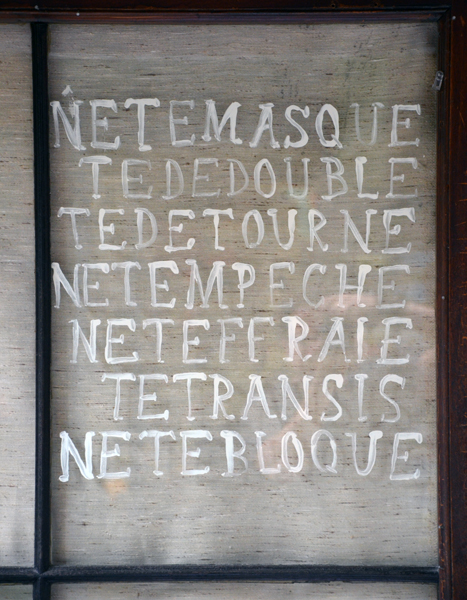 NETEMASQUE
TEDEDOUBLE
TEDETOURNE
NETEMPECHE
NETEFFRAIE
TETRANSIS
NETEBLOQUE